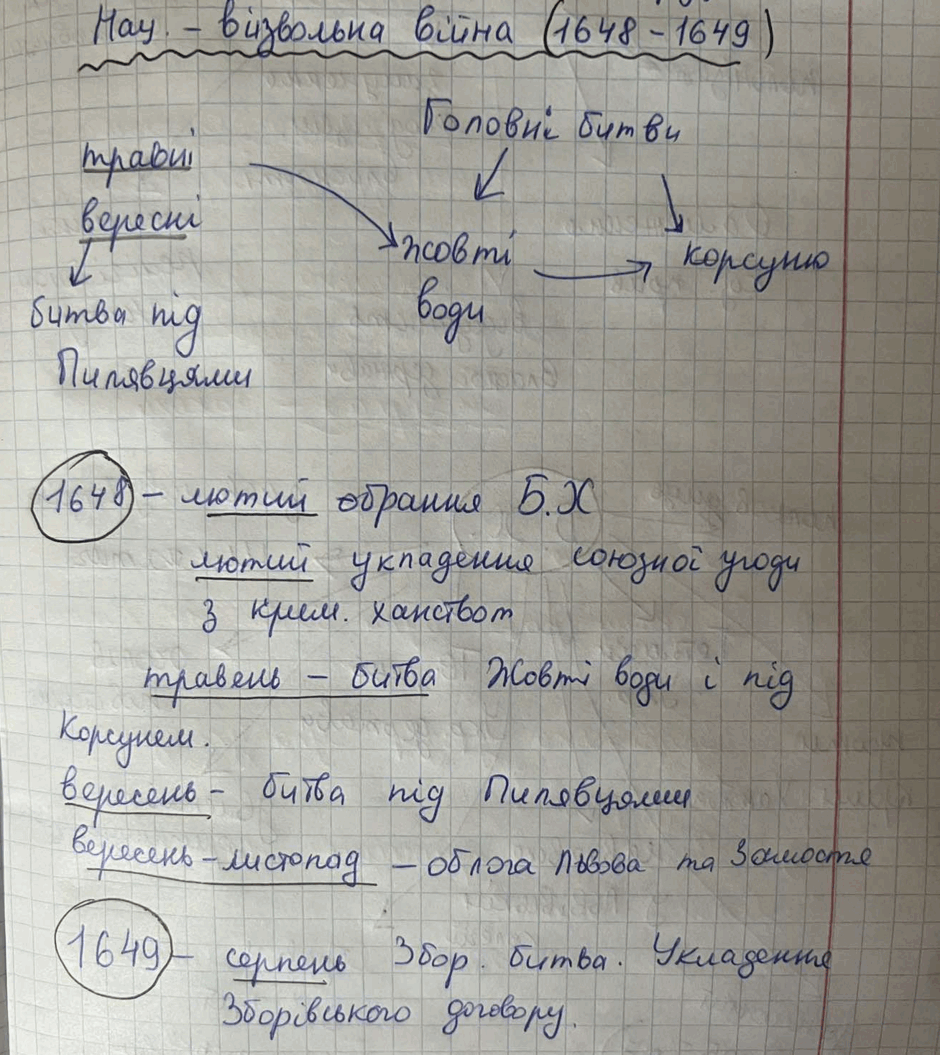 Нац. - візвольна війна (1648 - 1649)
Головні битви
травні
вересні
жовті
води
корсуню
битва під
Пилявцями
1648 - лютий обрання Б.Х
лютий укладення союзної угоди
з крим. ханством
травень - битва Жовті води і під
Корсунем.
вересень - битва під Пилявцями
вересень - листопад - облога Львова та Замостя
1649 - серпень Збор. битва. Укладення
Зборівського договору.